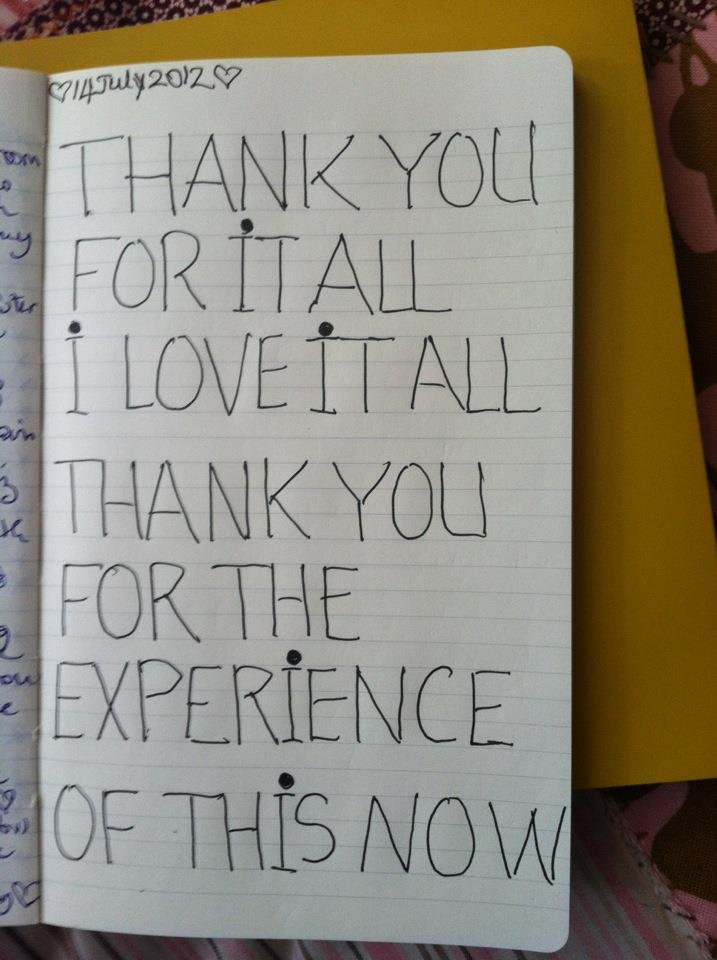 ♡14July2012♡
THANK YOU
FOR iT ALL
i LOVE iT ALL
THANK YOU
FOR THE
EXPERiENCE
OF THiS NOW